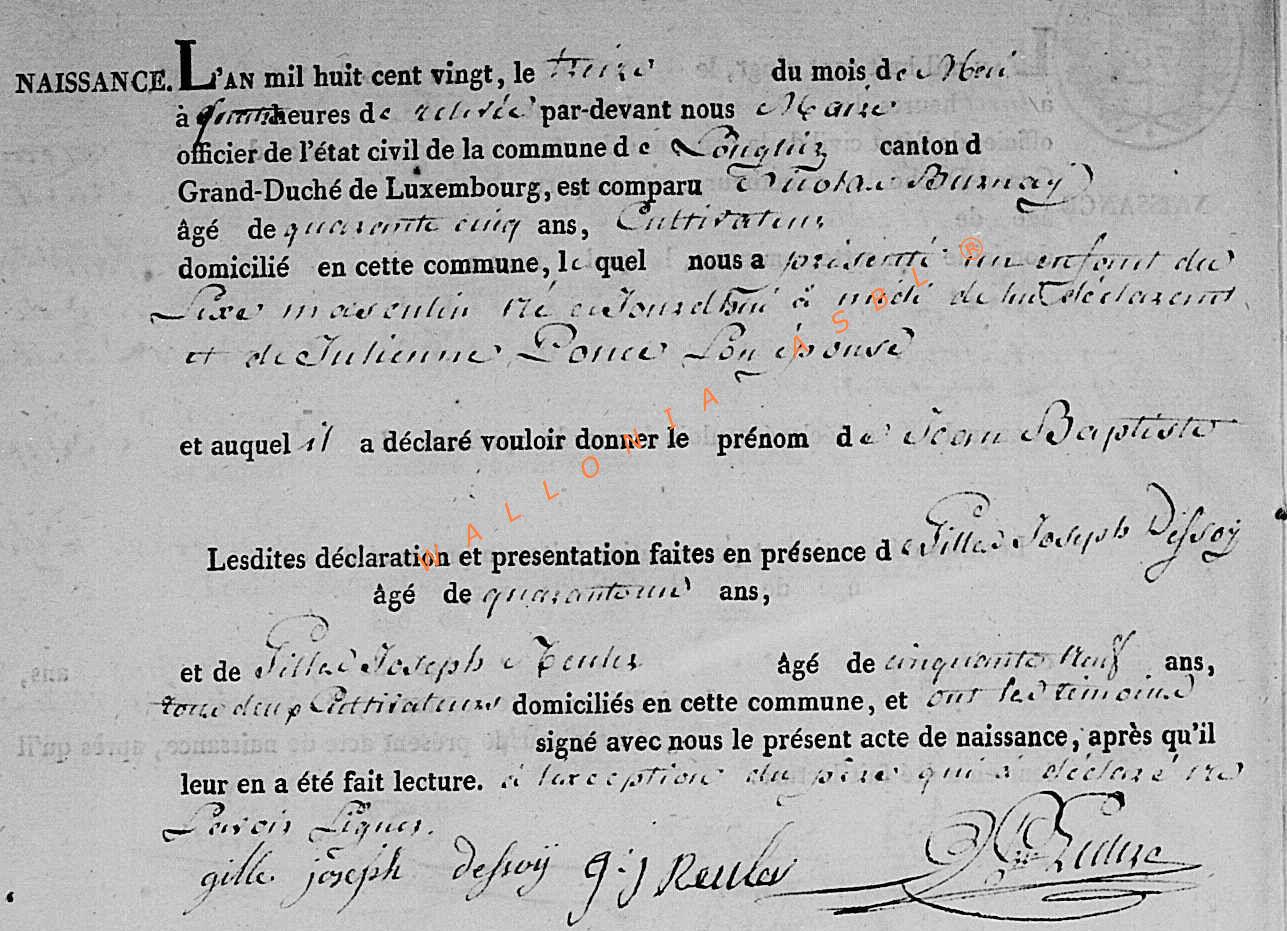 NAISSANCE. L'AN mil huit cent vingt, le treize du mois de Mai
à heures de relevée par-devant nous Maire
officier de l'état civil de la commune de Longlier canton d
Grand-Duché de Luxembourg, est comparu Nicolas Burnay
âgé de quarante cinq ans, Cultivateur
domicilié en cette commune, le quel nous a présenté un enfant du
Sexe masculin né aujourdhui à midi de lui déclarant
et de Julienne Ponce Son épouse
et auquel il a déclaré vouloir donner le prénom de Jean Baptiste
Lesdites déclaration et presentation faites en présence de Gilles Joseph Dessoÿ
âgé de quarante un ans,
et de Gilles Joseph Reuler âgé de cinquante Neuf ans,
tous deux Cultivateurs domiciliés en cette commune, et ont les témoins
signé avec nous le présent acte de naissance, après qu'il
leur en a été fait lecture. à l'exception du père qui a déclaré ne
Savoir Signer.
gille joseph dessoÿ g:j Reuler
WALLONIA ASBL ®